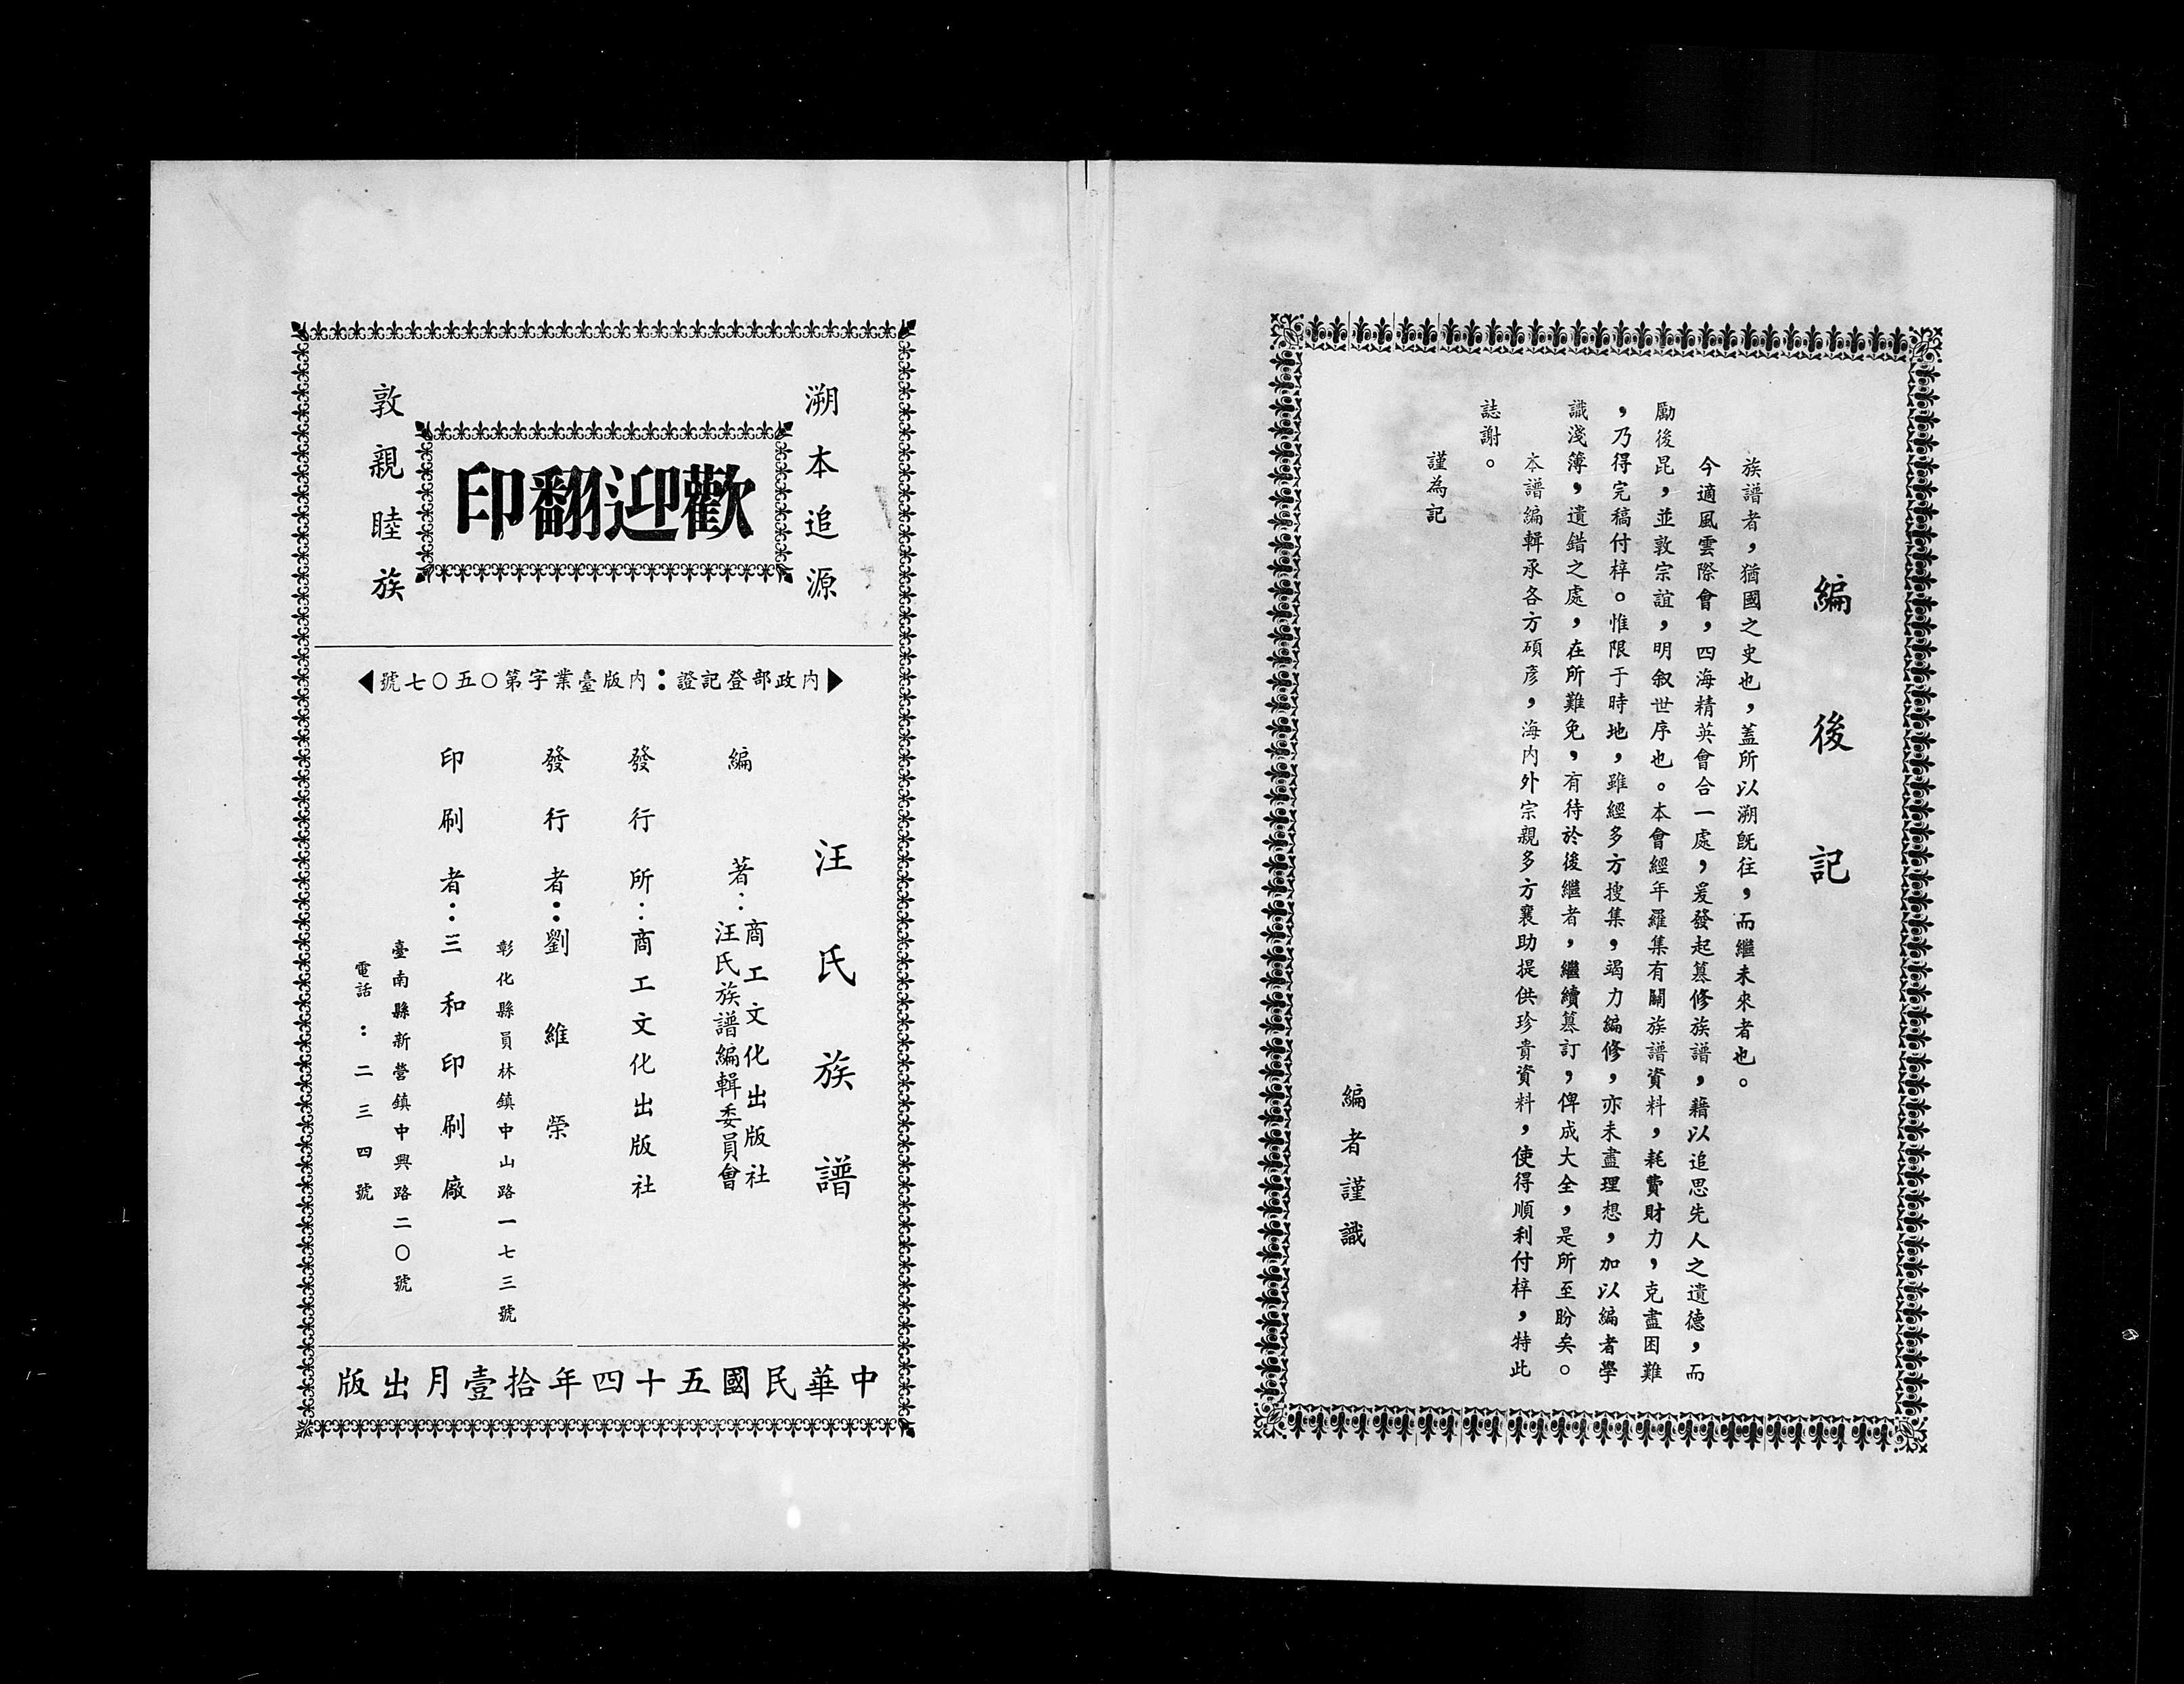 編後記
族譜者，猶國之史也，蓋所以溯既往，而繼未來者也。
今適風雲際會，四海精英會合一處，爰發起纂修族譜，藉以追思先人之遺德，而
勵後昆，並敦宗誼，明叙世序也。本會經年羅集有關族譜資料，耗費財力，克盡困難
，乃得完稿付梓。惟限于時地，雖經多方搜集，竭力編修，亦未盡理想，加以編者學
識淺薄，遺錯之處，在所難免，有待於後繼者，繼續纂訂，俾成大全，是所至盼矣。
本譜編輯承各方碩彥，海內外宗親多方襄助提供珍貴資料，使得順利付梓，特此
誌謝。
謹為記
編者謹識
溯本追源
歡迎翻印
敦親睦族
內政部登記證：內版臺業字第〇五〇七號
汪氏族譜
編著：商工文化出版社
汪氏族譜編輯委員會
發行所：商工文化出版社
發行者：劉維榮
彰化縣員林鎮中山路一七三號
印刷者：三和印刷廠
臺南縣新營鎮中興路二〇號
電話：二三四號
中華民國五十四年拾壹月出版